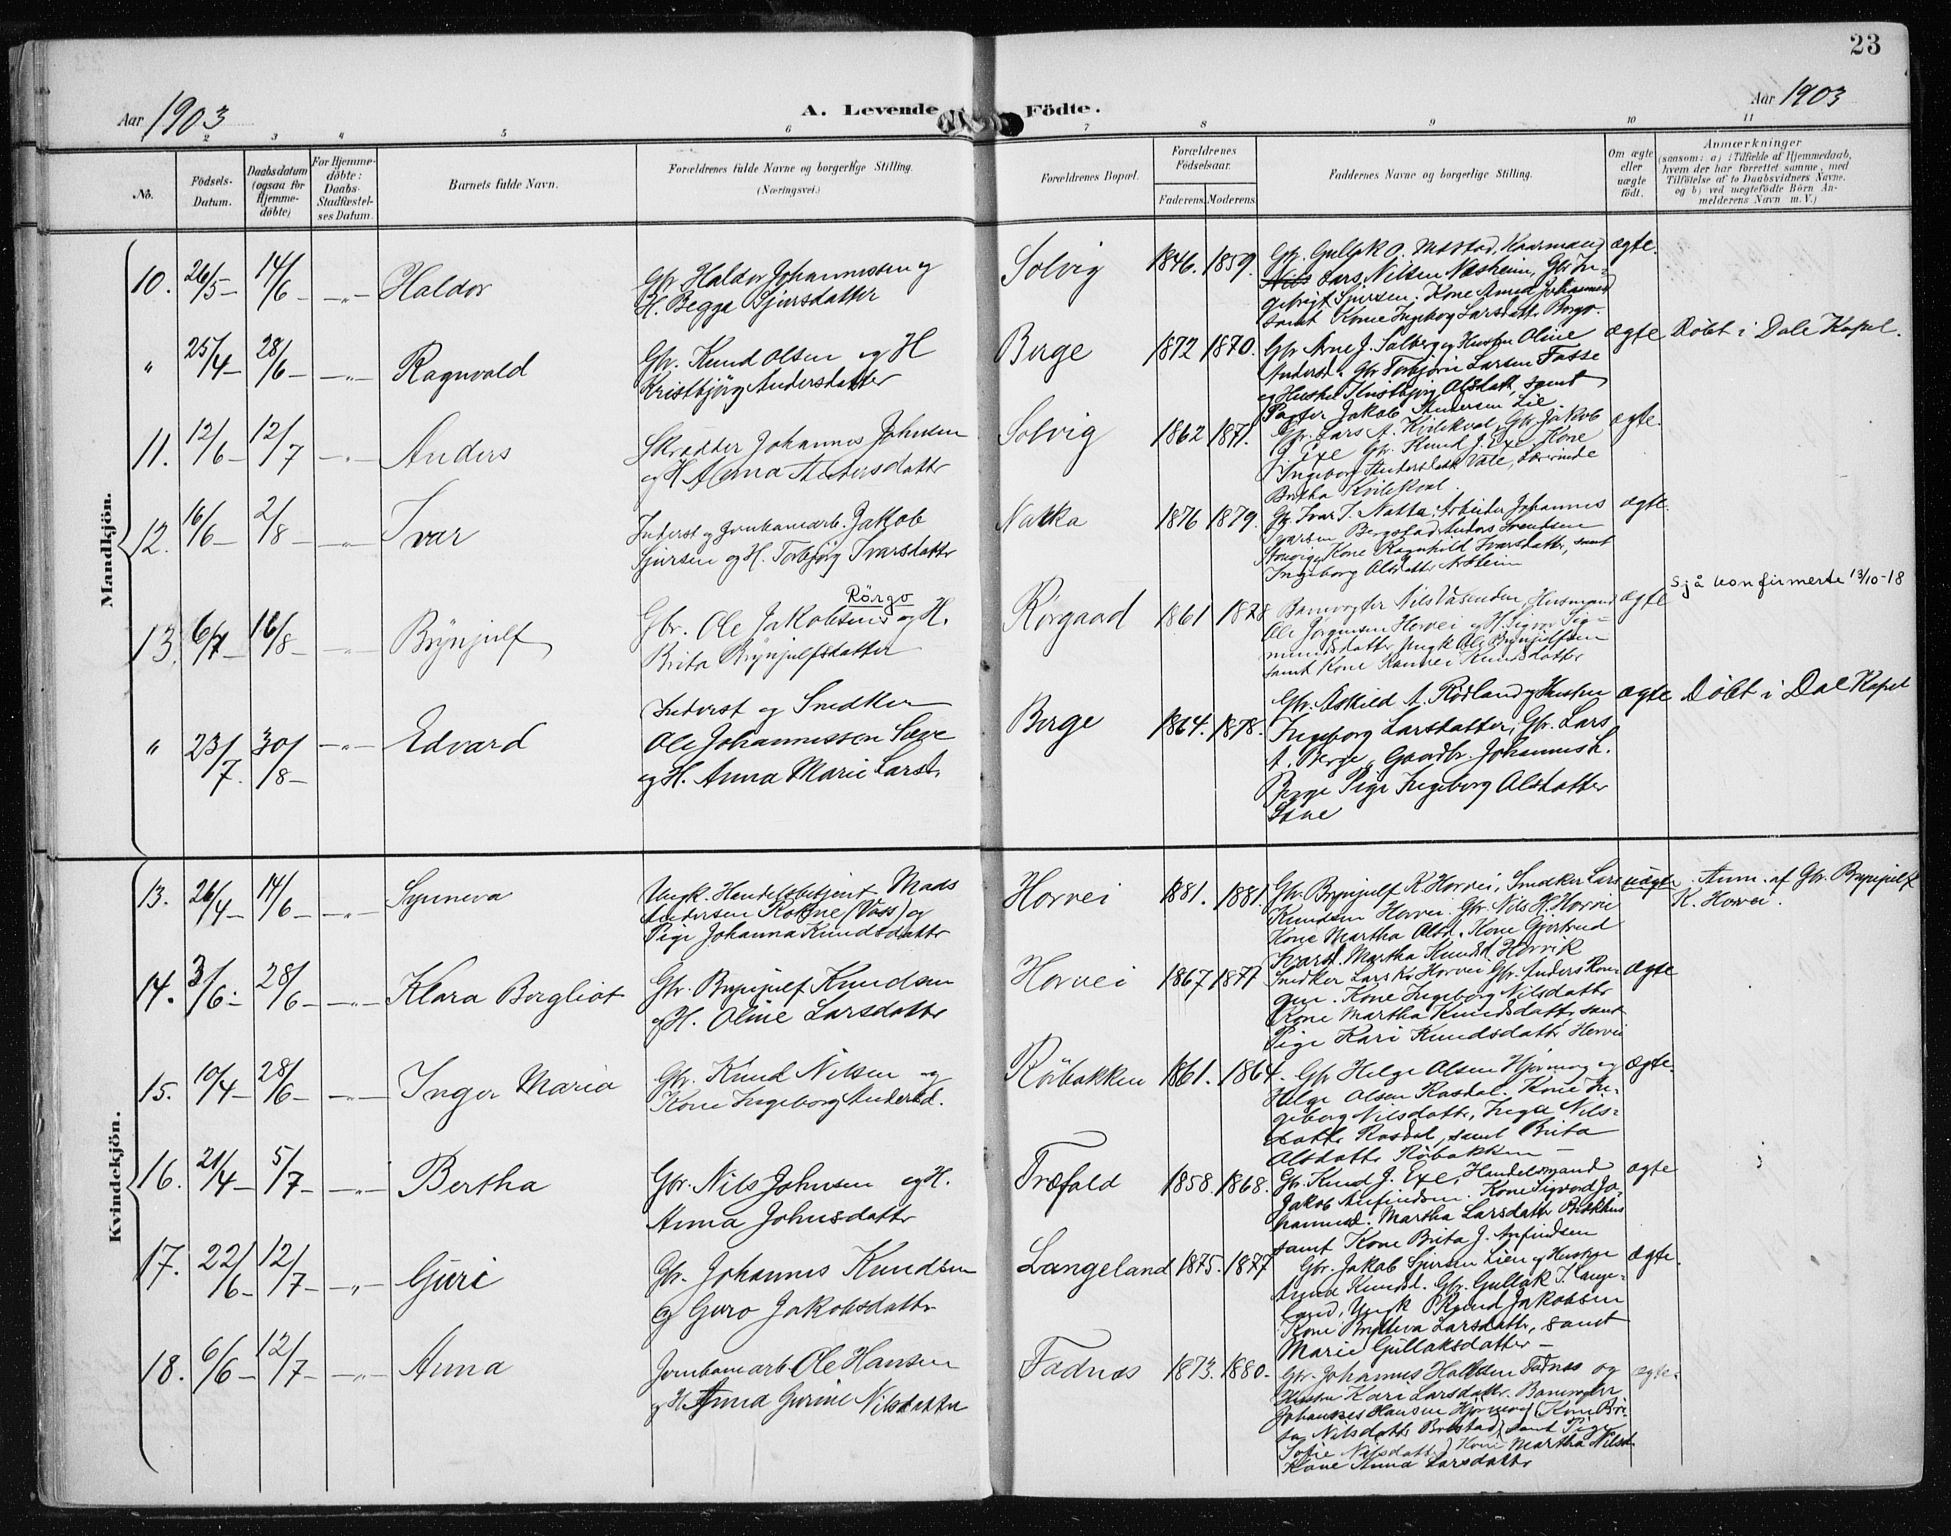 23
Aar 1903
A. Levende Födte.
Aar 1903
2 3 4 5 6 7 8 9 10 11
No.
Födsels-Datum.
Daabsdatum (ogsaa for Hjemme-döbte)
For Hjemme-döbte: Daabs-Stadfæstel-ses Datum.
Barnets fulde Navn.
Forældrenes fulde Navne og borgerlige Stilling.
(Næringsvei.)
Forældrenes Bopæl.
Forældrenes Födselsaar.
Faderens. Moderens.
Faddernes Navne og borgerlige Stilling.
Om ægte eller uægte født.
Anmærkninger
(saasom: a) i Tilfælde af Hjemmedaab,
hvem der har forrettet samme, med
Tilföielse af to Daabsvidners Navne,
og b) ved uegtefödte Börn An-
melderens Navn m. V.)
Mandkjön.
10. 26/5 14/6 Haldor
Gbr Haldor Johannessen og
H. Begga Sjursdatter
Solvig 1846. 1859.
Lars Nilsen Næsheim, Gbr In-
samt Kone Ingeborg Larsdatter Borge
ægte.
" 25/4 28/6 Ragnvald
Gbr. Knud Olsen og H
Kristbjörg Andersdatter
Berge 1872 1870.
Gbr Arne J. Salberg og Hustru Oline
Andersd. Gbr Torbjörn Larsen Fasse
samt
Jakob Andersen Lie
ægte Döbt i Dale Kapel.
11. 12/6 12/7 Anders
Skrædder Johannes Johnsen
og H Anna Andersdattr
Solvig 1862 1871.
Gbr. Lars A. Kvilekval, Gbr Jakob
J. Exe Gbr. Knud J. Exe, Kone
Ingeborg Andersdatt Væte, Lærerinde
Britha Kvilekval.
ægte.
12. 16/6 2/8 Ivar
Inderst og Jernbanearb. Jakob
Sjursen og H. Torbjörg Ivarsdattr
Nakka 1876 1879.
Johannes
Ivarsen Bergstad, Anders Svendsen
Kone Ragnhild Ivarsdatter, samt
Ingeborg Olsdatter
ægte.
13. 6/7 16/8 Brynjulf
Rörgo
Gbr. Ole Jakobsen og H.
Brita Brynjulfsdatter
Rörgaard 1861 1878
Banevogter Nils Væsenden, Husmand
Ole Jörgensen Horvei og H. Sigvor Sig-
mundsdatter, Ungk Ole Brynjulfsen
samt Kone Knudsdatter
ægte
Sjå konfirmerte 13/10-18
" 23/7 30/8 Edvard
Inderst og Snedker
Ole Johannessen Sæve
og H. Anna Marie Larsd.
Berge 1864. 1878.
Gbr. Askild A. Rödland og Hustru
Ingeborg Larsdatter, Gbr. Lars
A. Berge, Gaardbr Johannes L.
Berge Pige Ingeborg Olsdatter
ægte Döbt i Dal Kapel
Kvindekjön.
13. 26/4 14/6 Synneva
Ungk. Handelsbetjent Mads
Andersen Rokne (Voss) og
Pige Johanna Knudsdattr
Horvei 1881. 1881.
Gbr. Brynjulf K Horvei, Snedker Lars
Knudsen Horvei. Gbr. Nils H. Horvei
Kone Martha Olsd. Kone Gjertrud
Ivarsd. Martha Knudsd Horvik
uägte. Anm. af Gbr. Brynjulf
K. Horvei.
14. 3/6 28/6 Klara Bergliot
Gbr. Brynjulf Knudsen
og H. Oline Larsdattr
Horvei 1867 1877
Snedker Lars K. Horvei Gbr. Anders
Kone Ingeborg Nilsdattr
Kone Martha Knudsdattr samt
Pige Kari Knudsdattr Horvei
ægte
15. 10/4 28/6 Inger Maria
Gbr. Knud Nilsen og
Kone Ingeborg Andersd.
Röibakken 1861. 1864.
Gbr Helge Olsen og
Helge Olsen Rasdal. Kone In-
geborg Nilsdattr, Inga Nils-
dattr Rasdal, samt Brita
Olsdattr Röbakken
ægte.
16. 21/4 5/7 Bertha
Gbr. Nils Johnsen og H.
Anna Johnsdattr
Træfald 1858 1868.
Gbr. Knud J. Exe, Handelsmand
Jakob Anfindsen. Kone Sigvord Jo-
hannesd. Martha Larsdatter
samt Kone Brita J. Anfindsen
ægte
17. 22/6 12/7 Guri
Gbr. Johannes Knudsen
og Guro Jakobsdattr
Langeland 1875. 1877
Gbr. Jakob Sjursen Lien og Hustru
Anna Knudsd. Gbr. Gullak J. Lange-
land, Ungk Knud Jakobsen
Kone Brytteva Larsdattr, samt
Marie Gullaksdatter
ægte.
18. 6/6 12/7 Anna
Jernbanearb. Ole Hansen
og H. Anna Gurine Nilsdatter
Fadnæs 1873. 1880.
Gbr. Johannes Haldsen Fadnæs og
Hustru Kari Larsdattr. Banevogter
Johannes Hansen
Nilsdattr samt Pige
Sofie Nilsdatter, Kone Martha Nilsd
Kone Anna Larsdattr
ægte.